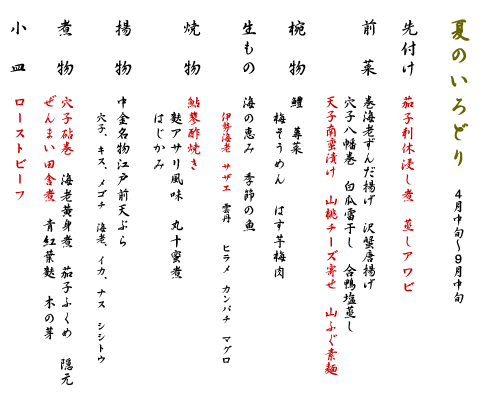 夏のいろどり
4月中旬〜9月中旬
先付け
茄子利休浸し煮 蒸しアワビ
前菜
巻海老ずんだ揚げ 沢蟹唐揚げ
穴子八幡巻 白瓜雷干し 合鴨塩蒸し
天子南蛮漬け 山桃チーズ寄せ 山ふぐ素麺
椀物
鱧 蓴菜
梅そうめん はす芋梅肉
生もの
海の恵み 季節の魚
伊勢海老 サザエ 雲丹 ヒラメ カンパチ マグロ
焼物
鮎蓼酢焼き
麩アサリ風味 丸十蜜煮
はじかみ
揚物
中金名物江戸前天ぷら
穴子、キス、メゴチ 海老、イカ、ナス シシトウ
煮物
穴子砧巻 海老黄身煮 茄子ふくめ 隠元
ぜんまい田舎煮 青紅葉麩 木の芽
小皿
ローストビーフ